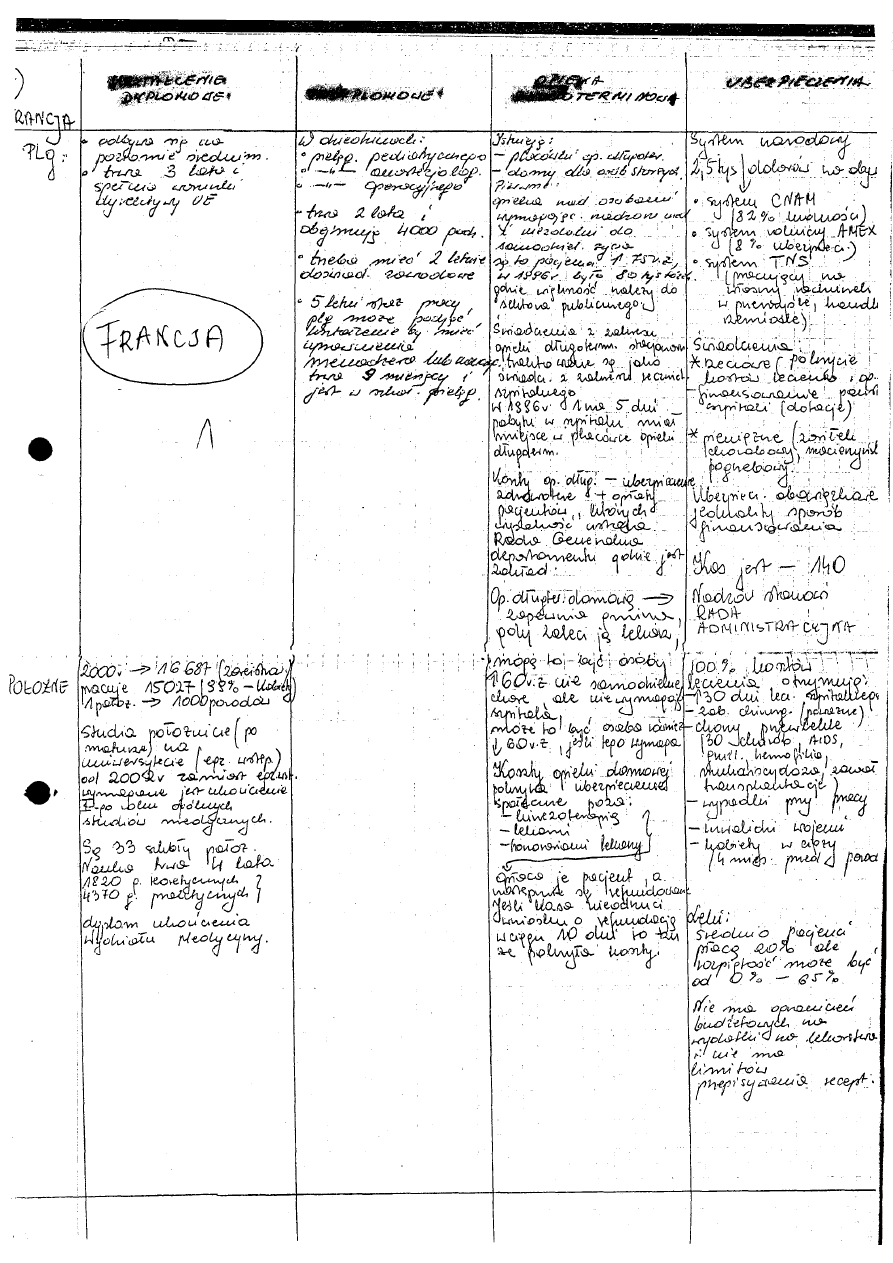 )
RANCJA
DYPLOMOWE
OPIEKA
UBEZPIECZENIA
PLG:
• odbywa się na
poziomie średnim.
• trwa 3 lata i
spełnia warunki
dyrektywy UE
FRANCJA
1
W dziedzinach:
• pielęg. pediatrycznego
• —"— anestezjolog.
• —"— operacyjnego
- trwa 2 lata i
obejmuje 4000 godz.
• trzeba mieć 2 letnie
doświad. zawodowe
• 5 letni staż pracy
plg może podjąć
kształcenie by mieć
uprawnienia
menadżera lub
trwa 9 miesięcy i
jest w szkoł. pielęg.
Istnieją:
- placówki op. długoter.
- domy dla osób starszych
opieka nad osobami
wymagając. nadzoru
z niezdolni do
samodziel. życia
są to pacjenci ↑ 75 r.ż,
w 1996r. było 80 tys łóżek
gdzie większość należy do
sektora publicznego.
Świadczenia z zakresu
opieki długoterm. stacjonarn
traktowane są jako
świadcz. z zakresu
szpitalnego
W 1996r 1 na 5 dni
pobytu w szpitalu miał
miejsce w placówce opieki
długoterm.
Koszty op. dług. - ubezpieczenie
zdrowotne + opłaty
pacjentów, których
wysokość ustala
Rada Generalna
departamentu gdzie jest
zakład.
Op. długoter. domową →
zapewnia gmina,
gdy zaleci ją lekarz,
System narodowy
2,5 tys dolarów
• system CNAM
(82% ludności)
• system rolniczy AMEX
(8% ubezpiecz.)
• system TNS
(pracujący na
własny rachunek
w przemyśle, handlu
rzemiośle)
Świadczenia:
* rzeczowe (pokrycie
kosztów leczenia i op.
- finansowanie
szpitali (dotacje)
* pieniężne (zasiłek
chorobowy, macierzyński
pogrzebowy
Ubezpiecz. obowiązkowe
jednolity sposób
finansowania
Kas jest — 140
Nadzór stanowi
RADA
ADMINISTRACYJNA
POŁOŻNE
2000r. → 16 687 (zarejestr.)
pracuje 15027 (99% - kobiety)
1 położ. → 1000 porodów
Studia położnicze (po
maturze) na
uniwersytecie (egz. wstęp.)
od 2002r zamiast egz. wst.
wymagane jest ukończenie
I-go roku ogólnych
studiów medycznych.
Są 33 szkoły położ.
Nauka trwa 4 lata
1820 g. teoretycznych
4370 g. praktycznych
dyplom ukończenia
Wydziału Medycyny.
mogą to być osoby
↑ 60 r.ż nie samodzielne,
chore ale nie wymagają
szpitala,
może to być osoba również
↓ 60 r.ż, jeśli tego wymaga
Koszty opieki domowej
pokrywa ubezpieczenie
społeczne poza:
- kinezoterapią
- lekami
- honorariami lekarzy
opłaca je pacjent, a
następnie są refundowane
Jeśli kasa nieodrzuci
wniosku o refundację
w ciągu 10 dni to
że pokryła koszty.
100% kosztów
leczenia otrzymują:
- ↑30 dni lecz. szpitalnego
- zab. chirurg. (poważne)
- chorzy przewlekle
(30 chorób, AIDS,
gruźl., hemofilia,
mukowiscydoza, zawał
transplantacje)
- wypadki przy pracy
- inwalidzi wojenni
- kobiety w ciąży
(4 mies. przed porod
Leki:
Średnio pacjenci
płacą 20% ale
rozpiętość może być
od 0% - 65%
Nie ma ograniczeń
budżetowych na
wydatki na lekarstwa
i nie ma
limitów
przepisywania recept.